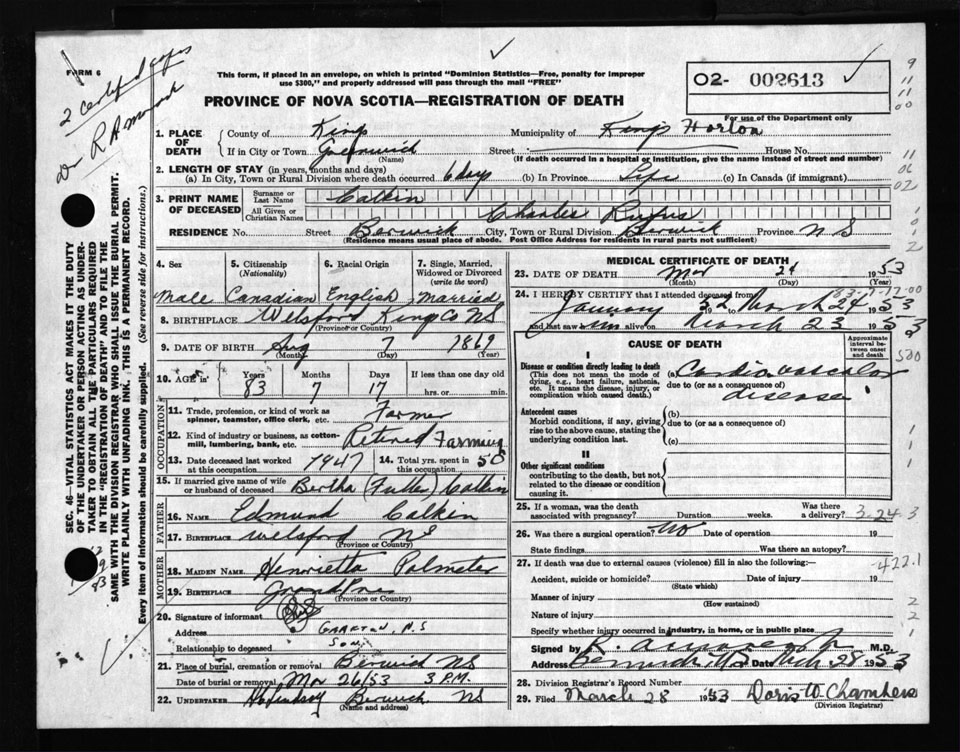 FORM 6
2 Certif
Dr R A
This form, if placed in an envelope, on which is printed "Dominion Statistics—Free, penalty for improper
use $300," and properly addressed will pass through the mail "FREE"
PROVINCE OF NOVA SCOTIA—REGISTRATION OF DEATH
O2- 002613
For use of the Department only
1. PLACE OF DEATH
County of Kings Municipality of Kings Horton
If in City or Town Greenwich Street House No.
(Name) (If death occurred in a hospital or institution, give the name instead of street and number)
2. LENGTH OF STAY (in years, months and days)
(a) In City, Town or Rural Division where death occurred 6 days (b) In Province Life (c) In Canada (if immigrant)
3. PRINT NAME OF DECEASED
Surname or Last Name Calkin
All Given or Christian Names Charles Rufus
RESIDENCE No. Street Berwick City, Town or Rural Division Berwick Province N S
(Residence means usual place of abode. Post Office Address for residents in rural parts not sufficient)
4. Sex Male
5. Citizenship (Nationality) Canadian
6. Racial Origin English
7. Single, Married, Widowed or Divorced (write the word) Married
8. BIRTHPLACE Welsford Kings Co NS
(Province or Country)
9. DATE OF BIRTH Aug 7 1869
(Month) (Day) (Year)
10. AGE in Years 83 Months 7 Days 17 If less than one day old hrs. or min.
OCCUPATION
11. Trade, profession, or kind of work as spinner, teamster, office clerk, etc. Farmer
12. Kind of industry or business, as cotton-mill, lumbering, bank, etc. Retired Farming
13. Date deceased last worked at this occupation 1947 14. Total yrs. spent in this occupation 50
15. If married give name of wife or husband of deceased Bertha (Fuller) Calkin
FATHER
16. NAME Edmund Calkin
17. BIRTHPLACE Welsford NS
(Province or Country)
MOTHER
18. MAIDEN NAME Henrietta Palmeter
19. BIRTHPLACE Grand Pre
(Province or Country)
20. Signature of informant
Address N.S
Relationship to deceased Son
21. Place of burial, cremation or removal Berwick NS
Date of burial or removal Mar 26/53 3 P.M.
22. UNDERTAKER Lindsay Berwick NS
(Name and address)
MEDICAL CERTIFICATE OF DEATH
23. DATE OF DEATH Mar 24 1953
(Month) (Day) (Year)
24. I HEREBY CERTIFY that I attended deceased from
January 1952 to March 24 1953
and last saw him alive on March 23 1953
CAUSE OF DEATH
Approximate interval between onset and death
I
Disease or condition directly leading to death
(This does not mean the mode of dying, e.g., heart failure, asthenia, etc. It means the disease, injury, or complication which caused death.)
(a) Cardio vascular disease
due to (or as a consequence of)
Antecedent causes
Morbid conditions, if any, giving rise to the above cause, stating the underlying condition last.
(b)
due to (or as a consequence of)
(c)
II
Other significant conditions
contributing to the death, but not related to the disease or condition causing it.
25. If a woman, was the death associated with pregnancy? Duration weeks. Was there a delivery? 3-24.3
26. Was there a surgical operation? No Date of operation 19
State findings Was there an autopsy?
27. If death was due to external causes (violence) fill in also the following:—
-422.1
Accident, suicide or homicide? Date of injury 19
(State which)
Manner of injury
(How sustained)
Nature of injury
Specify whether injury occurred in industry, in home, or in public place
Signed by R. M.D.
Address Berwick NS Date Mch 28 1953
28. Division Registrar's Record Number
29. Filed March 28 1953 Doris W Chambers
(Division Registrar)
SEC. 46—VITAL STATISTICS ACT MAKES IT THE DUTY
OF THE UNDERTAKER OR PERSON ACTING AS UNDER-
TAKER TO OBTAIN ALL THE PARTICULARS REQUIRED
IN THE "REGISTRATION OF DEATH" AND TO FILE THE
SAME WITH THE DIVISION REGISTRAR WHO SHALL ISSUE THE BURIAL PERMIT.
WRITE PLAINLY WITH UNFADING INK. THIS IS A PERMANENT RECORD.
Every item of information should be carefully supplied. (See reverse side for instructions.)